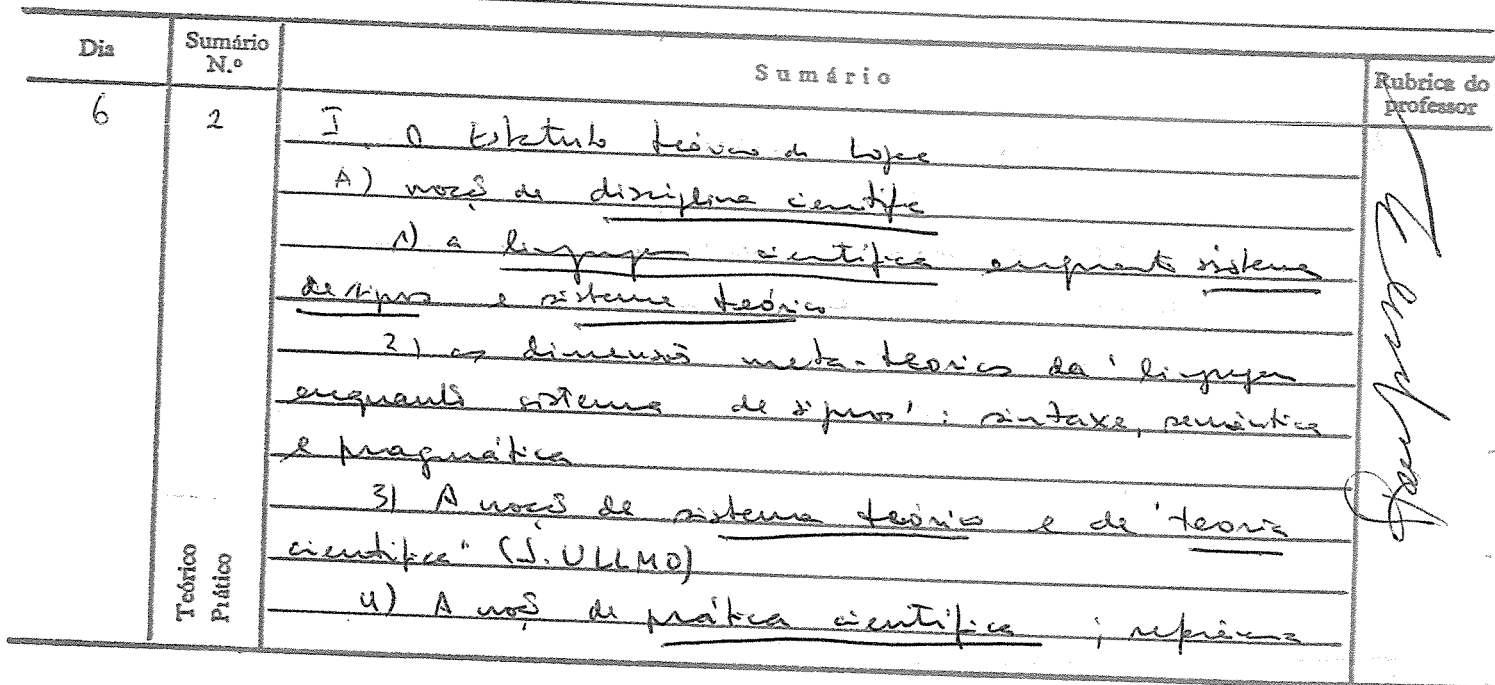 Dia
Sumário N.º
Sumário
Rubrica do professor
6
2
I O Estatuto teórico da Lógica
A) noção de disciplina científica
1) a linguagem científica enquanto sistema
de signos e sistema teórico
2) as dimensões meta-teóricas da 'linguagem
enquanto sistema de signos' : sintaxe, semântica
e pragmática
3) A noção de sistema teórico e de 'teoria
científica" (J. ULLMO)
4) A noção de prática científica ; referência
Teórico
Prático